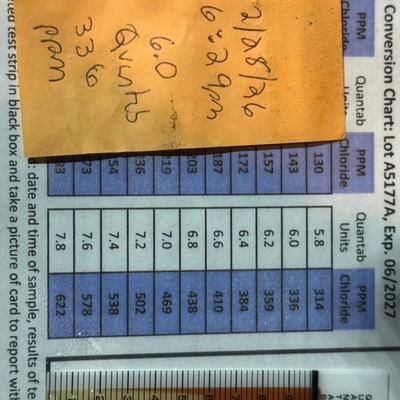 Conversion Chart: Lot A5177A, Exp. 06/2027
PPM Quantab PPM Quantab PPM
Chloride Units Chloride Units Chloride
130 5.8 314
143 6.0 336
157 6.2 359
172 6.4 384
187 6.6 410
203 6.8 438
219 7.0 469
36 7.2 502
54 7.4 538
73 7.6 578
93 7.8 622
2/28/26
6:29pm
6.0
Quantab
336
ppm
: date and time of sample, results of
test strip in black box and take a picture of card to report